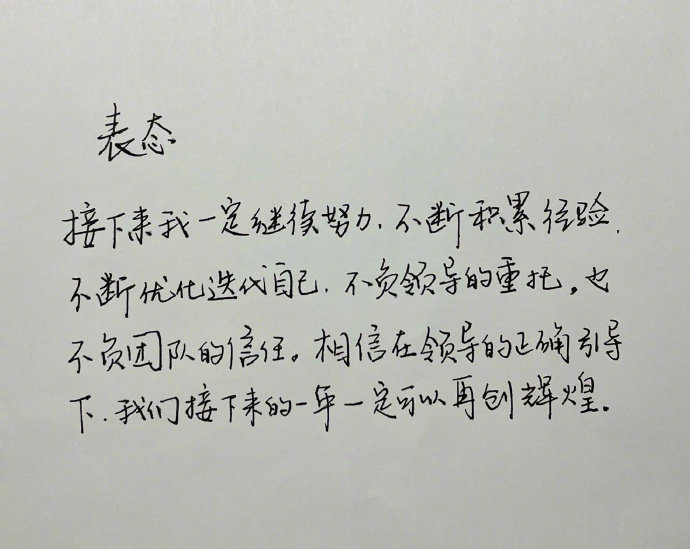 表态
接下来我一定继续努力,不断积累经验,
不断优化迭代自己,不负领导的重托。也
不负团队的信任。相信在领导的正确引导
下,我们接下来的一年一定可以再创辉煌。